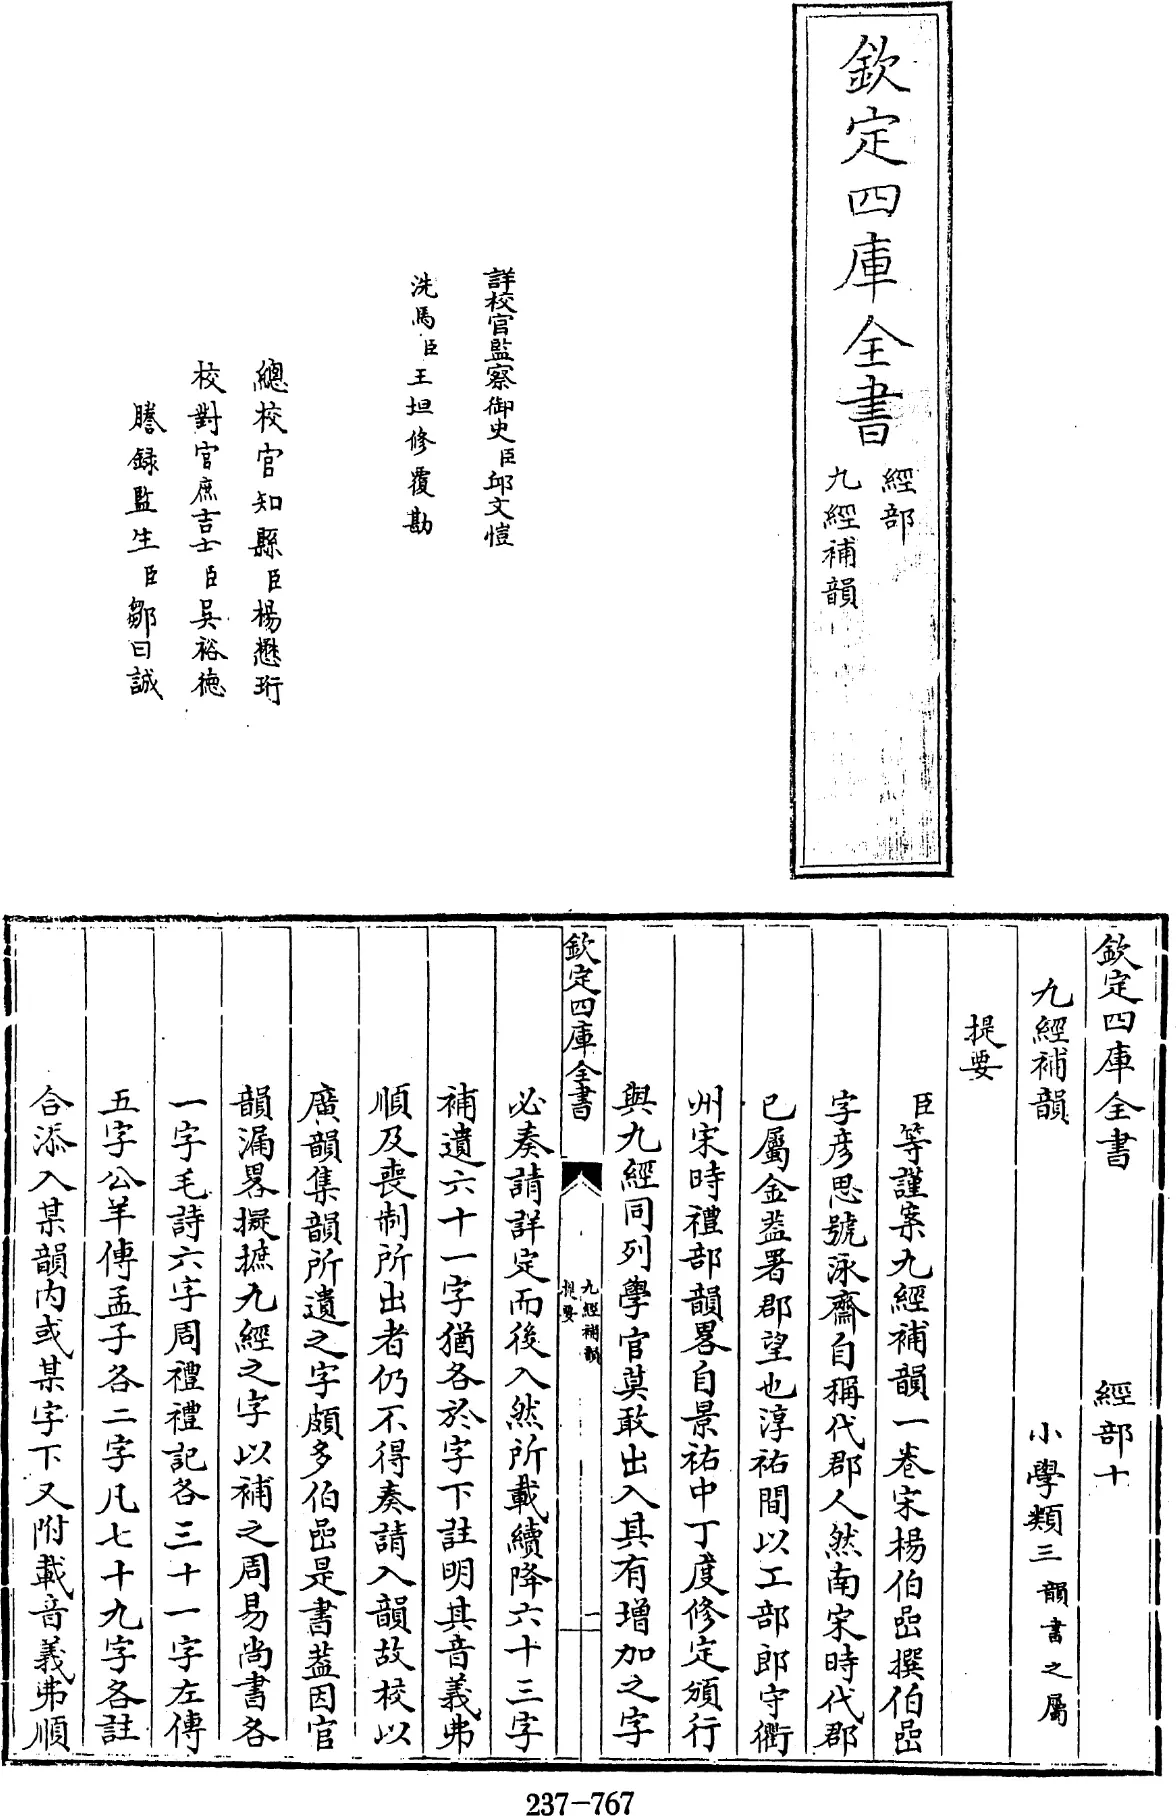 欽定四庫全書
經部
九經補韻
詳校官監察御史臣邱文愷
洗馬臣王坦修覆勘
總校官知縣臣楊懋珩
校對官庶吉士臣吳裕德
謄録監生臣鄒曰誠
欽定四庫全書　經部十
九經補韻　小學類三韻書之屬
提要
臣等謹案九經補韻一卷宋楊伯嵒撰伯嵒
字彦思號泳齋自稱代郡人然南宋時代郡
已屬金葢署郡望也淳祐間以工部郎守衢
州宋時禮部韻畧自景祐中丁度修定頒行
與九經同列學官莫敢出入其有增加之字
欽定四庫全書
九經補韻
提要
一
必奏請詳定而後入然所載續降六十三字
補遺六十一字猶各於字下註明其音義弗
順及喪制所出者仍不得奏請入韻故校以
廣韻集韻所遺之字頗多伯嵒是書葢因官
韻漏畧擬摭九經之字以補之周易尚書各
一字毛詩六字周禮禮記各三十一字左傳
五字公羊傳孟子各二字凡七十九字各註
合添入某韻内或某字下又附載音義弗順
237-767